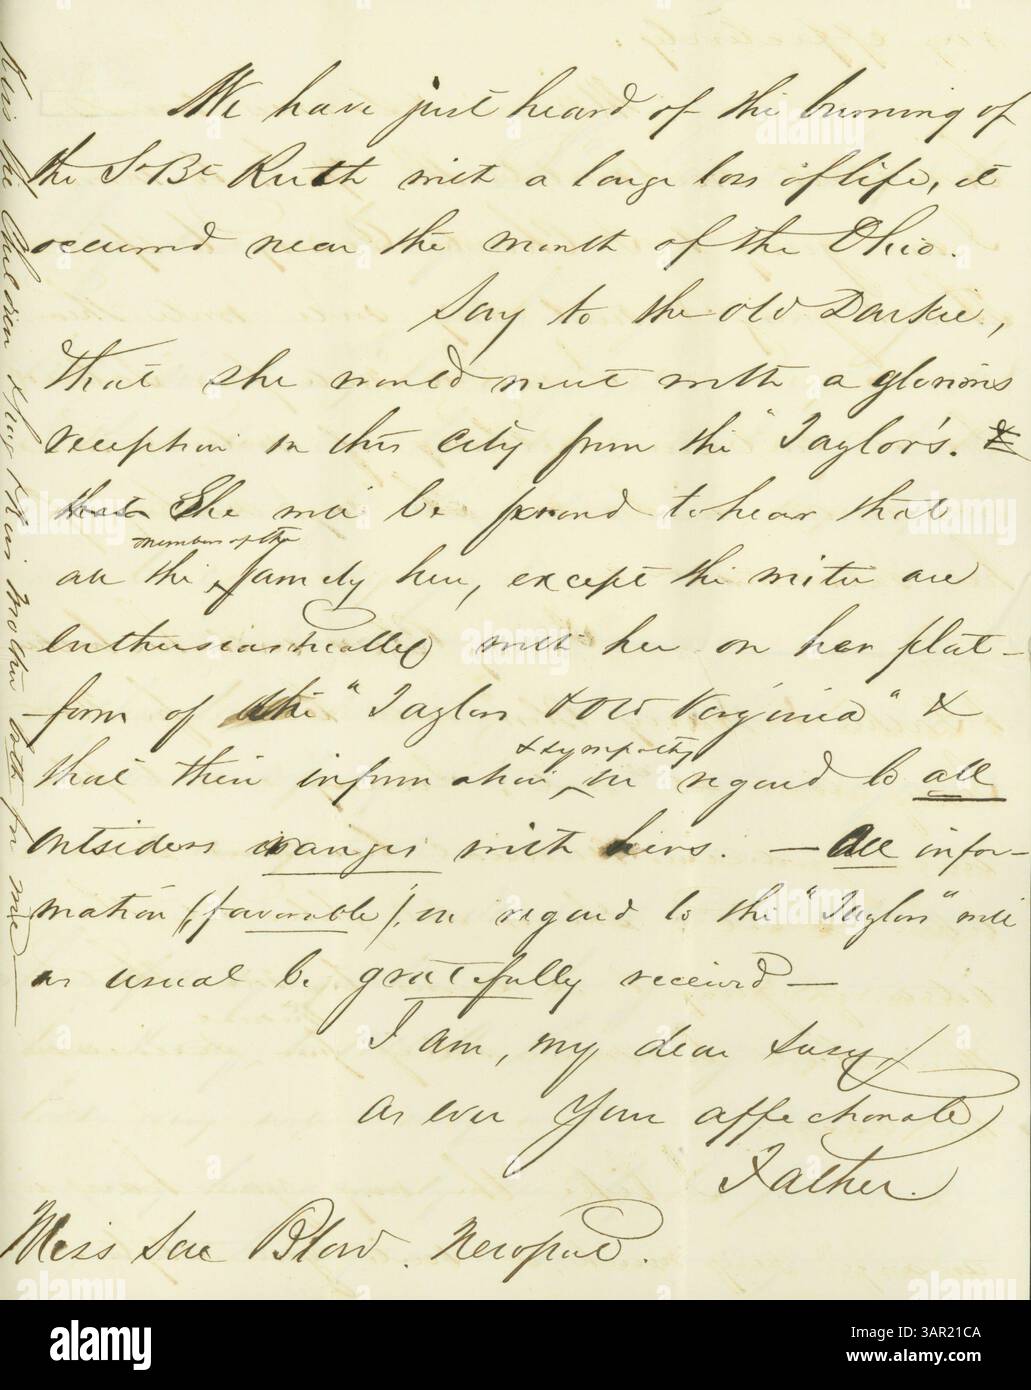 We have just heard of the burning of
the St Bt Ruth with a large loss of life, it
occurred near the mouth of the Ohio.
Say to the old Darkie,
that she would meet with a glorious
reception in this City from the "Taylor's. &
that She will be proud to hear that
all the members of the family here, except the writer are
enthusiastically with her on her plat-
-form of the "Taylors & Old Virginia" &
that their information & sympathy in regard to all
outsiders ranges with hers. — All infor-
mation (favorable), in regard to the "Taylors" will
as usual be gratefully received —
I am, my dear Susy,
as ever Your affectionate
Father.
Miss Sue Blow. Newport.
Kiss the Children & hug & kiss Mother both for me
alamy
Image ID: 3AR21CA
www.alamy.com